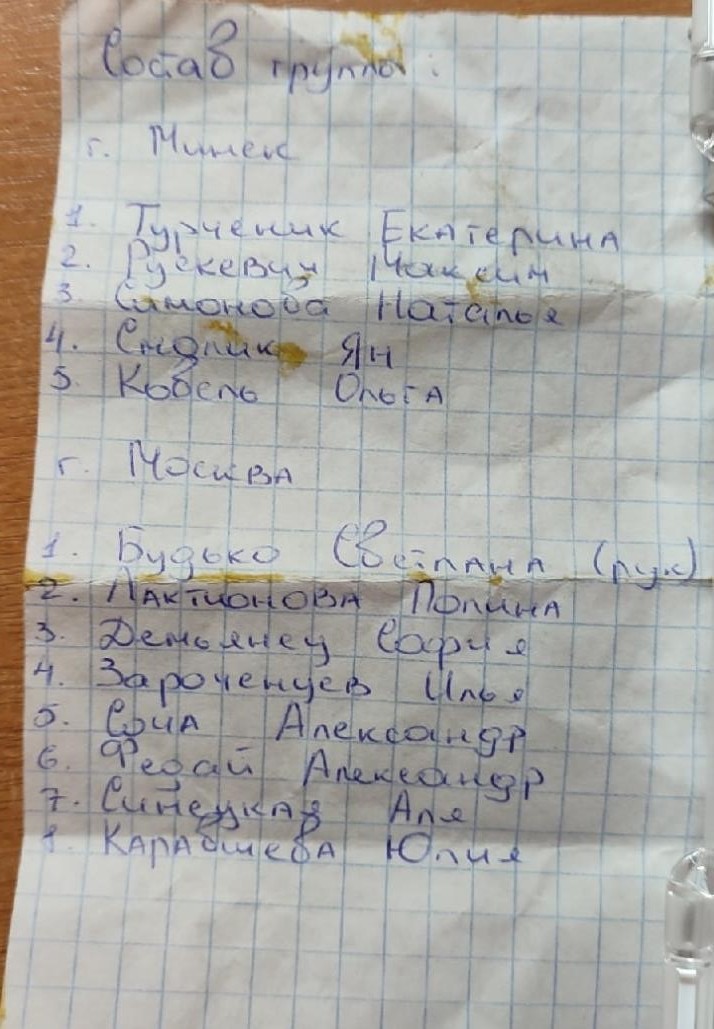 Состав группы:
г. Минск
1. Турченик Екатерина
2. Рускевич Максим
3. Симонова Наталья
4. Ян
5. Кобель Ольга
г. Москва
1. Будько Светлана (рук)
2. Лактионова Полина
3. Демьянец София
4. Зароченцев Илья
5. Соча Александр
6. Федай Александр
7. Синецкая Аля
8. Карабшева Юлия